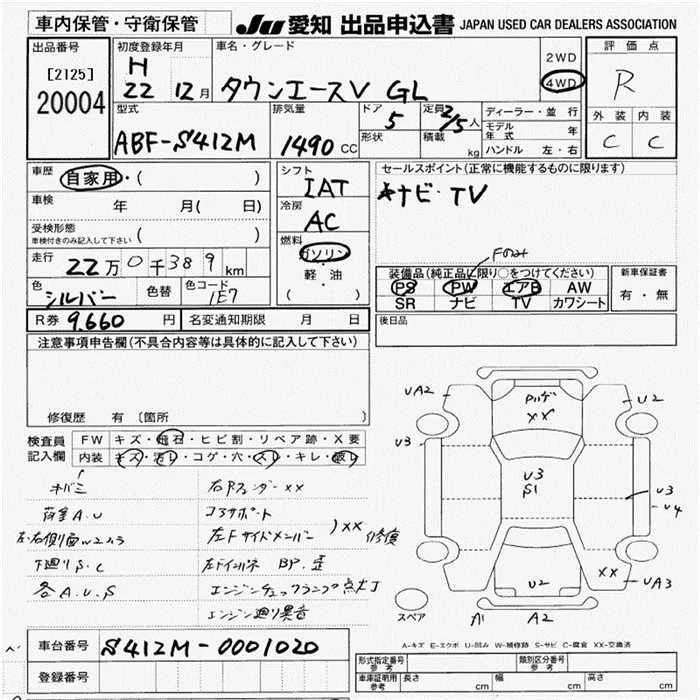 車内保管・守衛保管
JU 愛知 出品申込書 JAPAN USED CAR DEALERS ASSOCIATION
出品番号
[2125]
20004
初度登録年月
H
22 12月
車名・グレード
タウンエースV GL
2WD
4WD
評価点
R
外装 内装
C C
型式
ABF-S412M
排気量
1490 CC
ドア
5
形状
定員 2/5人
積載 kg
ディーラー・並行
モデル年式 年
ハンドル 左・右
車歴 自家用・( )
車検 年 月( 日)
受検形態
車検付きのみ記入して下さい ( )
走行 22万0千389km
色 シルバー 色替 色コード 1E7
シフト
IAT
冷房
AC
燃料
ガソリン
・
軽・油
( )
セールスポイント(正常に機能するものに限ります)
ナビ・TV
Fのみ
装備品(純正品に限り○をつけてください)
PS PW エアB AW
SR ナビ TV カワシート
新車保証書
有・無
R券 9.660円 名変通知期限 月 日
後日品
注意事項申告欄(不具合内容等は具体的に記入して下さい)
修復歴 有 〔箇所 〕
検査員記入欄
FW キズ・飛石・ヒビ割・リペア跡・X要
内装 キズ・汚レ・コゲ・穴・スレ・キレ・破レ
荷室A.U コアサポート
左F サイドメンバー )××修復
下廻りS.C
各A.U.S エンジンチェックランプ点灯
エンジン廻り異音
UA2
U2
××
U3
U3
S1
U3
U4
U2
××
UA3
スペア
A1
A2
A-キズ E-エクボ U-凹み W-補修跡 S-サビ C-腐食 XX-交換済
車台番号 S412M-0001020
登録番号
形式指定番号 参考
類別区分番号 参考
車庫証明用 参考 長さ cm 幅 cm 高さ cm